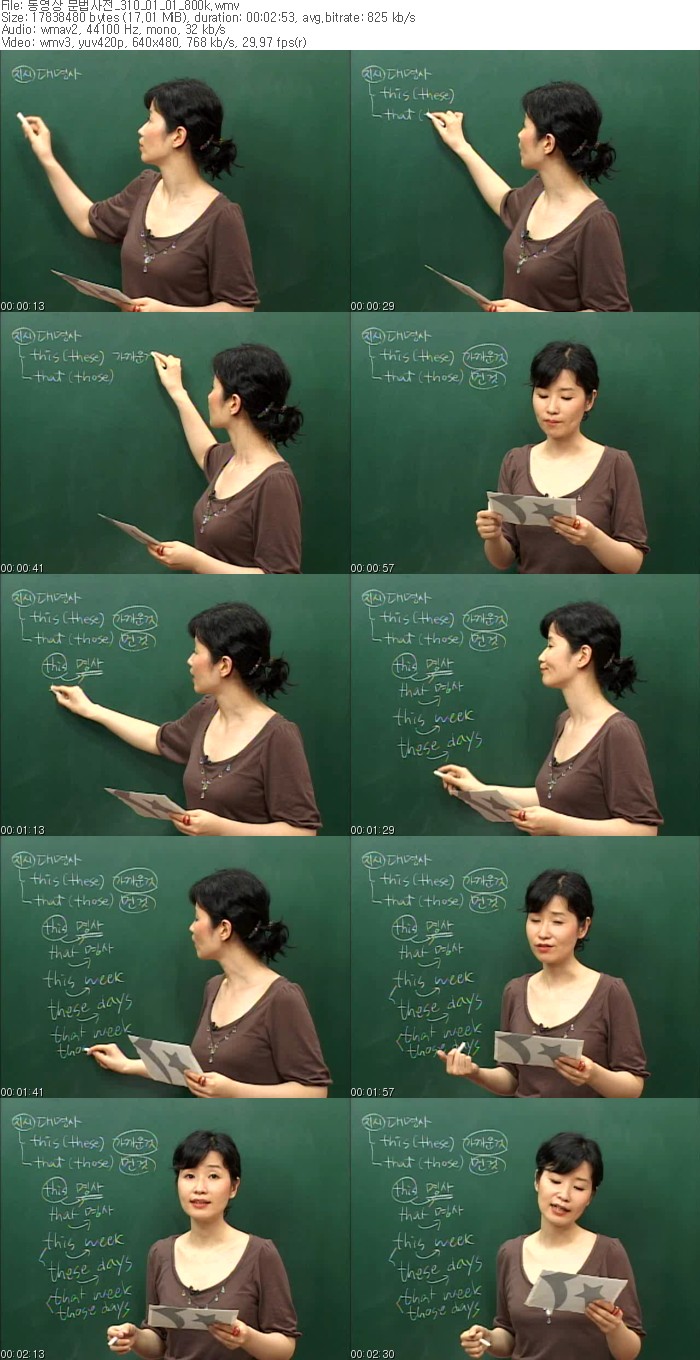 File: 동영상 문법사전_310_01_01_800k.wmv
Size: 17838480 bytes (17.01 MiB), duration: 00:02:53, avg.bitrate: 825 kb/s
Audio: wmav2, 44100 Hz, mono, 32 kb/s
Video: wmv3, yuv420p, 640x480, 768 kb/s, 29.97 fps(r)
지시 대명사
00:00:13
지시 대명사
this (these)
that (
00:00:29
지시 대명사
this (these) 가까운
that (those)
00:00:41
지시 대명사
this (these) 가까운것
that (those) 먼것
00:00:57
지시 대명사
this (these) 가까운것
that (those) 먼것
this 명사
00:01:13
지시 대명사
this (these) 가까운것
that (those) 먼것
this 명사
that 명사
this week
these days
00:01:29
지시 대명사
this (these) 가까운것
that (those) 먼것
this 명사
that 명사
this week
these days
that week
tho
00:01:41
지시 대명사
this (these) 가까운것
that (those) 먼것
this 명사
that 명사
this week
these days
that week
those
00:01:57
지시 대명사
this (these) 가까운것
that (those) 먼것
this 명사
that 명사
this week
these days
that week
those days
00:02:13
지시 대명사
this (these) 가까운것
that (those) 먼것
this 명사
that 명사
this week
these days
that week
those days
00:02:30